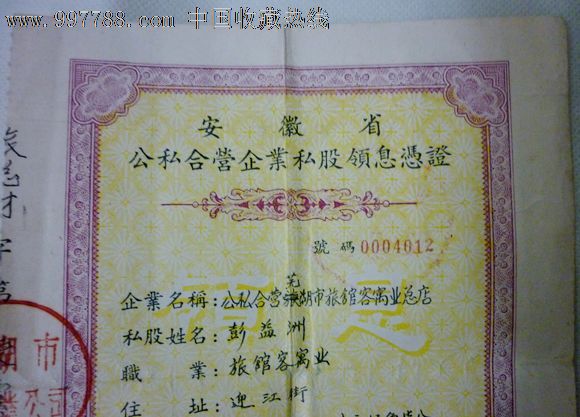 www.997788.com 中国收藏热线
安徽省
公私合營企業私股領息憑證
號碼 0004012
企業名稱：公私合营芜湖市旅館客寓业总店
私股姓名：彭益洲
職業：旅館客寓业
住址：迎江街
旅总才字第
湖市